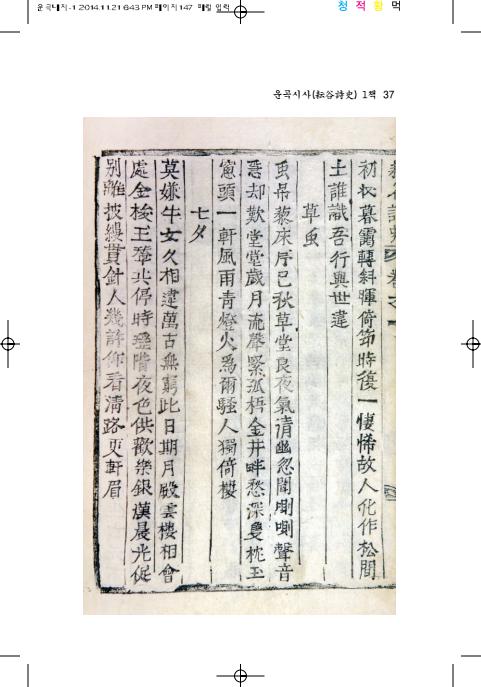 운곡대지-1 2014.11.21 6:43 PM 페이지147 매킨 입력
청 적 황 먹
운곡시사(耘谷詩史) 1책 37
初收暮靄轉斜暉倚節時復一悽悕故人化作松間
土誰識吾行與世違
草虫
虫吊藜床序已秋草堂良夜氣清幽忽聞喞喞聲音
意却歎堂堂歲月流聲緊孤梧金井畔愁深雙枕玉
窓頭一軒風雨青燈火爲爾騷人獨倚樓
七夕
莫嫌牛女久相違萬古無窮此日期月殿雲樓相會
處金梭玉杼共停時瑤階夜色供歡樂銀漢晨光促
別離披縷貫針人幾許仰看淸路更軒眉